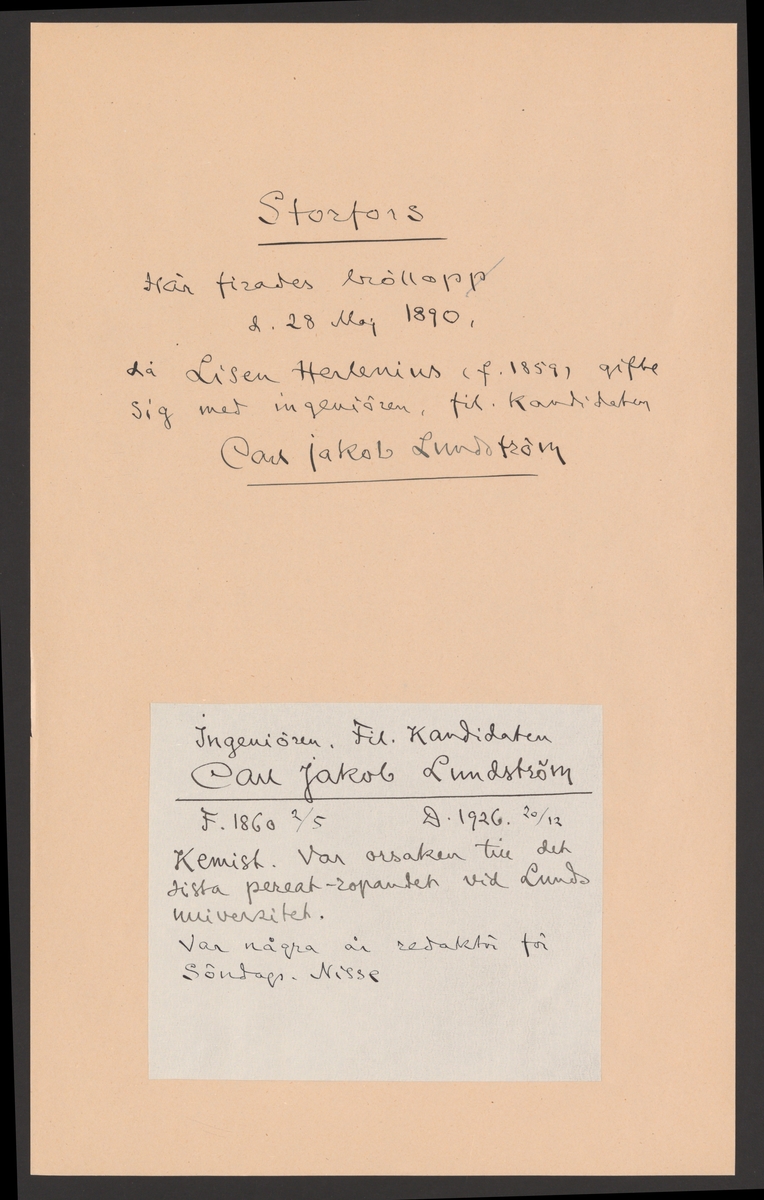 Storfors
Här firades bröllopp
d. 28 Maj 1890,
då Lisen Herlenius (f. 1859) gifte
sig med ingeniören, fil. Kandidaten
Carl Jakob Lundström
Ingeniören. Fil. Kandidaten
Carl Jakob Lundström
F. 1860 2/5 D. 1926. 20/12
Kemist. Var orsaken till det
sista pereat-ropandet vid Lunds
universitet.
Var några år redaktör för
Söndags-Nisse